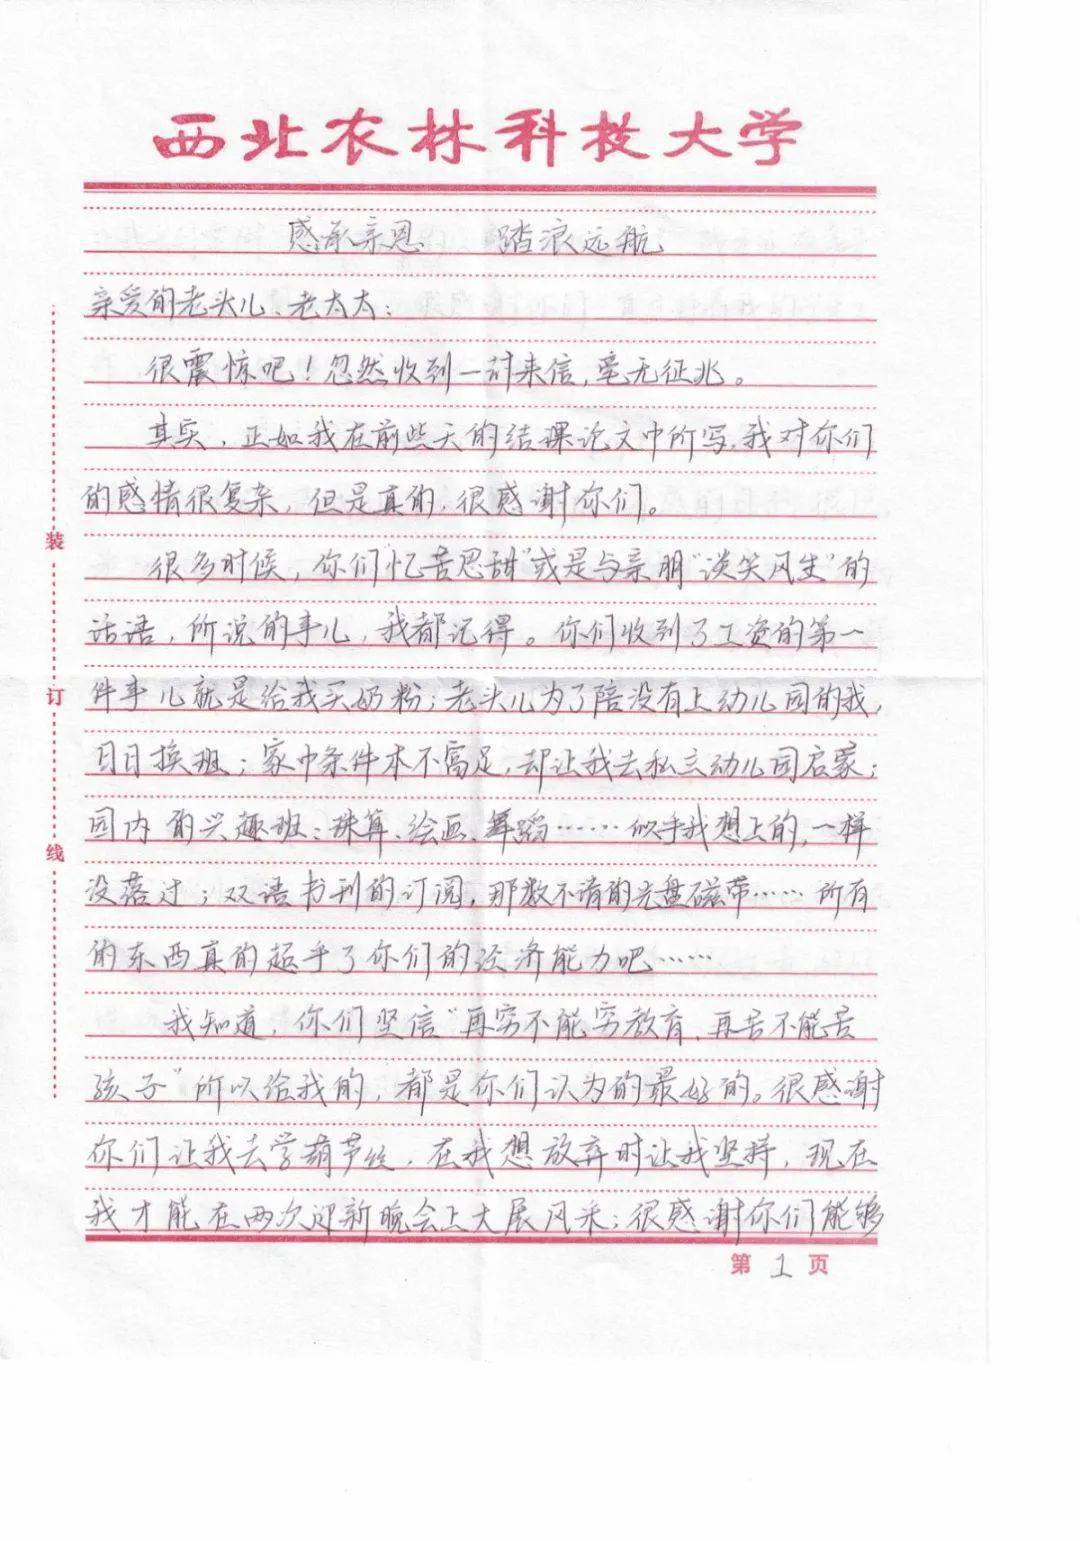 西北农林科技大学
感承亲恩 踏浪远航
亲爱的老头儿、老太太：
很震惊吧！忽然收到一封来信，毫无征兆。
其实，正如我在前些天的结课论文中所写，我对你们
的感情很复杂，但是真的，很感谢你们。
很多时候，你们“忆苦思甜”或是与亲朋“谈笑风生”的
话语，所说的事儿，我都记得。你们收到了工资的第一
件事儿就是给我买奶粉；老头儿为了陪没有上幼儿园的我，
日日换班；家中条件本不富足，却让我去私立幼儿园启蒙；
园内的兴趣班：珠算、绘画、舞蹈……似乎我想上的，一样
没落过；双语书刊的订阅，那数不清的光盘磁带……所有
的东西真的超乎了你们的经济能力吧……
我知道，你们坚信“再穷不能穷教育，再苦不能苦
孩子”所以给我的，都是你们认为的最好的。很感谢
你们让我去学葫芦丝，在我想放弃时让我坚持，现在
我才能在两次迎新晚会上大展风采；很感谢你们能够
第 1 页
装
订
线